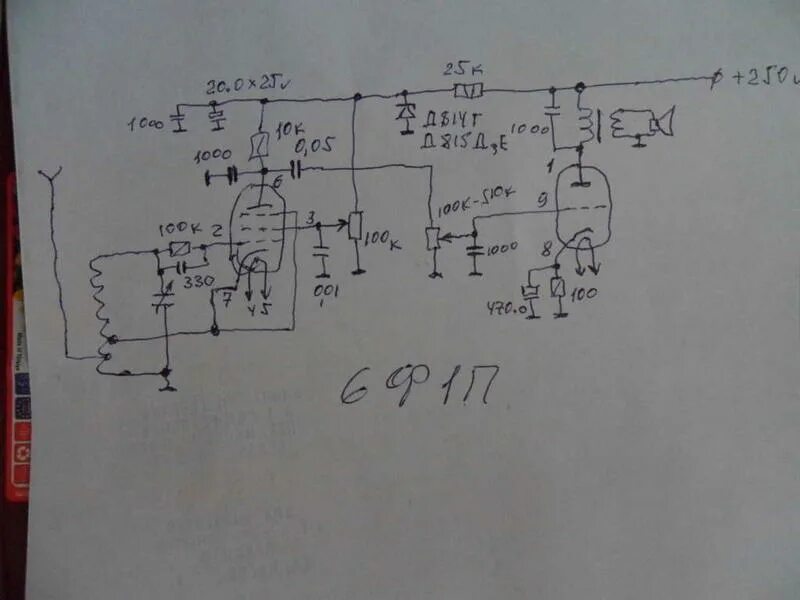 20.0×25v
25к
+250v
1000
10к
Д814Г
Д815Д,Е
1000
1000
0,05
1
6
9
100к-510к
100к
2
3
100к
1000
8
330
001
7
4 5
470.0
100
6Ф1П